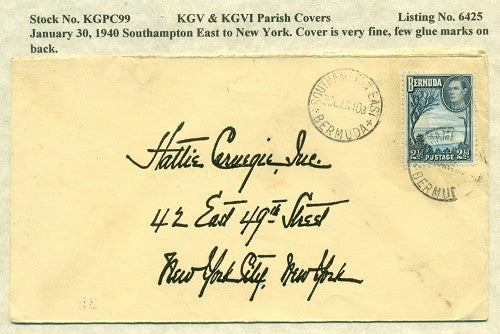 Stock No. KGPC99 KGV & KGVI Parish Covers Listing No. 6425
January 30, 1940 Southampton East to New York. Cover is very fine, few glue marks on
back.
SOUTHAMPTON EAST
BERMUDA
BERMUDA
2½ POSTAGE 2½
BERMUD
Hattie Carnegie, Inc.
42 East 49th Street
New York City, New York